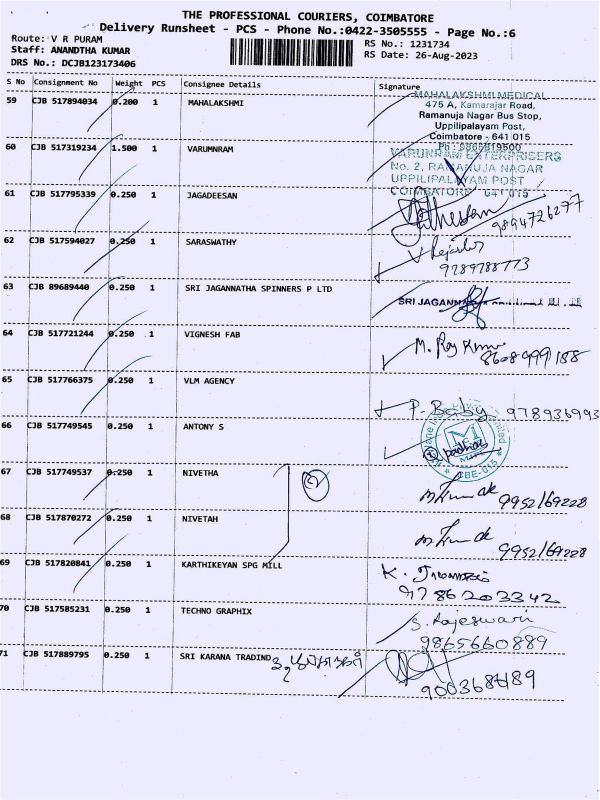 THE PROFESSIONAL COURIERS, COIMBATORE
Delivery Runsheet - PCS - Phone No.:0422-3505555 - Page No.:6
Route: V R PURAM
Staff: ANANDTHA KUMAR
DRS No.: DCJB123173406
RS No.: 1231734
RS Date: 26-Aug-2023
S No Consignment No Weight PCS Consignee Details Signature
59 CJB 517894034 0.200 1 MAHALAKSHMI
MAHALAKSHMI MEDICAL
475 A, Kamarajar Road,
Ramanuja Nagar Bus Stop,
Uppilipalayam Post,
Coimbatore - 641 015
Ph : 9865819500
60 CJB 517319234 1.500 1 VARUMNRAM
VARUNRAM ENTERPRISERS
No. 2, RAMANUJA NAGAR
UPPILIPALAYAM POST
COIMBATORE 641 015
61 CJB 517795339 0.250 1 JAGADEESAN
9894726277
62 CJB 517594027 0.250 1 SARASWATHY
9789788773
63 CJB 89689440 0.250 1 SRI JAGANNATHA SPINNERS P LTD
SRI JAGANNA
64 CJB 517721244 0.250 1 VIGNESH FAB
M. Raj Kumar
8608999188
65 CJB 517766375 0.250 1 VLM AGENCY
P. Baby 978936993
66 CJB 517749545 0.250 1 ANTONY S
CBE-015
67 CJB 517749537 0.250 1 NIVETHA
2
9952169228
68 CJB 517870272 0.250 1 NIVETAH
9952169228
69 CJB 517820841 0.250 1 KARTHIKEYAN SPG MILL
K.
9786203342
70 CJB 517585231 0.250 1 TECHNO GRAPHIX
S. Rajeswari
9865660889
71 CJB 517889795 0.250 1 SRI KARANA TRADIND